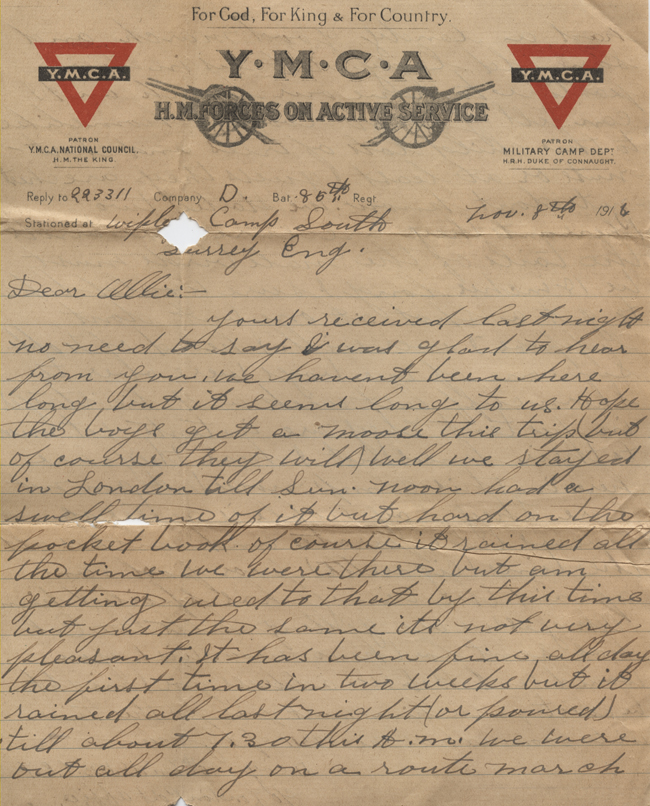 For God, For King & For Country.
Y·M·C·A
H.M. FORCES ON ACTIVE SERVICE
Y.M.C.A.
PATRON
Y.M.C.A. NATIONAL COUNCIL.
H.M. THE KING.
Y.M.C.A.
PATRON
MILITARY CAMP DEPT
H.R.H. DUKE OF CONNAUGHT.
Reply to 223311 Company D. Bat. 85th Regt
Stationed at Camp South Nov. 8th 1916
Surrey Eng.
Dear Ollie:—
Yours received last night
no need to say I was glad to hear
from you. we havent been here
long, but it seems long to us. Hope
the boys get a moose this trip (but
of course they will) Well we stayed
in London till Sun. noon had a
swell time of it but hard on the
pocket book. of course it rained all
the time we were there but am
getting used to that by this time
but just the same its not very
pleasant. It has been fine all day
the first time in two weeks, but it
rained all last night (or poured)
till about 7.30 this A.m. we were
out all day on a route march